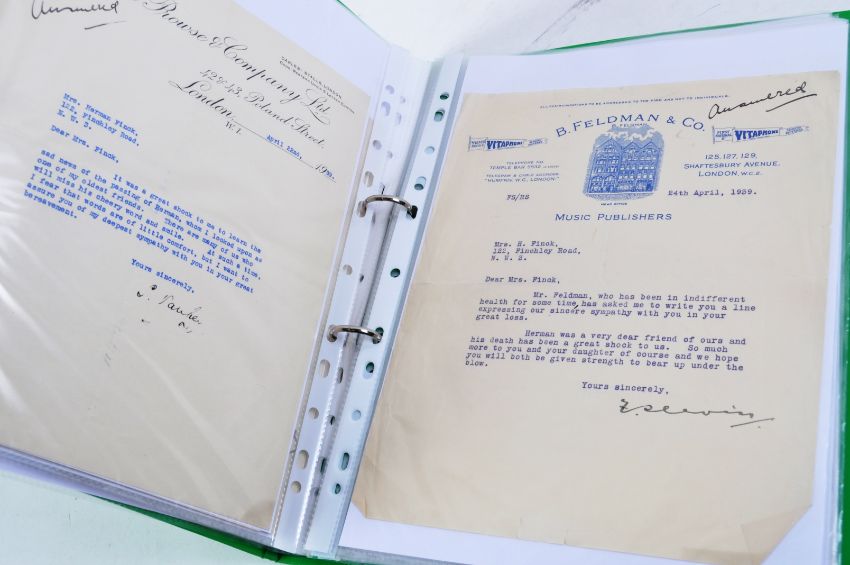 Answered
Prowse & Company Ltd.
42 & 43, Poland Street,
London,
W.1.
April 22nd, 19
Mrs. Herman Finck,
122, Finchley Road,
N. W. 3.
Dear Mrs. Finck,
It was a great shock to me to learn the
sad news of the passing of Herman, whom I looked upon as
one of my oldest friends. There are many of us who
will miss his cheery word and smile. At such a time,
I fear that words are of little comfort, but I want to
assure you of my deepest sympathy with you in your great
bereavement.
Yours sincerely,
ALL COMMUNICATIONS TO BE ADDRESSED TO THE FIRM AND NOT TO INDIVIDUALS.
Answered
B. FELDMAN & CO.
B. FELDMAN
VITAPHONE
VITAPHONE
TELEPHONE NO.
TEMPLE BAR 5532
TELEGRAM & CABLE ADDRESS
"HUMFRIV, W.C., LONDON."
125, 127, 129,
SHAFTESBURY AVENUE,
LONDON, W.C.2.
HEAD OFFICE
FS/HS
24th April, 1939.
MUSIC PUBLISHERS
Mrs. H. Finck,
122, Finchley Road,
N. W. 3.
Dear Mrs. Finck,
Mr. Feldman, who has been in indifferent
health for some time, has asked me to write you a line
expressing our sincere sympathy with you in your
great loss.
Herman was a very dear friend of ours and
his death has been a great shock to us. So much
more to you and your daughter of course and we hope
you will both be given strength to bear up under the
blow.
Yours sincerely,